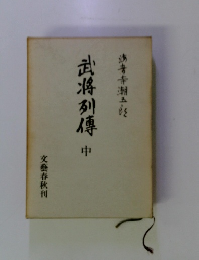 海音寺潮五郎
武将列傳
中
文藝春秋刊